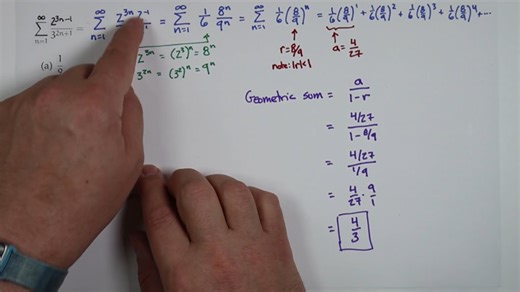 ∞ ∑ n=1 2^{3n-1} / 3^{2n+1} = ∞ ∑ n=1 2^{3n} 2^{-1} = ∞ ∑ n=1 1/6 8^n/9^n = ∞ ∑ n=1 1/6 (8/9)^n = 1/6(8/9)^1 + 1/6(8/9)^2 + 1/6(8/9)^3 + 1/6(8/9)^4 + ...
(a) 1/9
2^{3n} = (2^3)^n = 8^n
3^{2n} = (3^2)^n = 9^n
r = 8/9
note: |r| < 1
a = 4/27
Geometric sum = a / 1-r
= 4/27 / 1 - 8/9
= 4/27 / 1/9
= 4/27 · 9/1
= 4/3